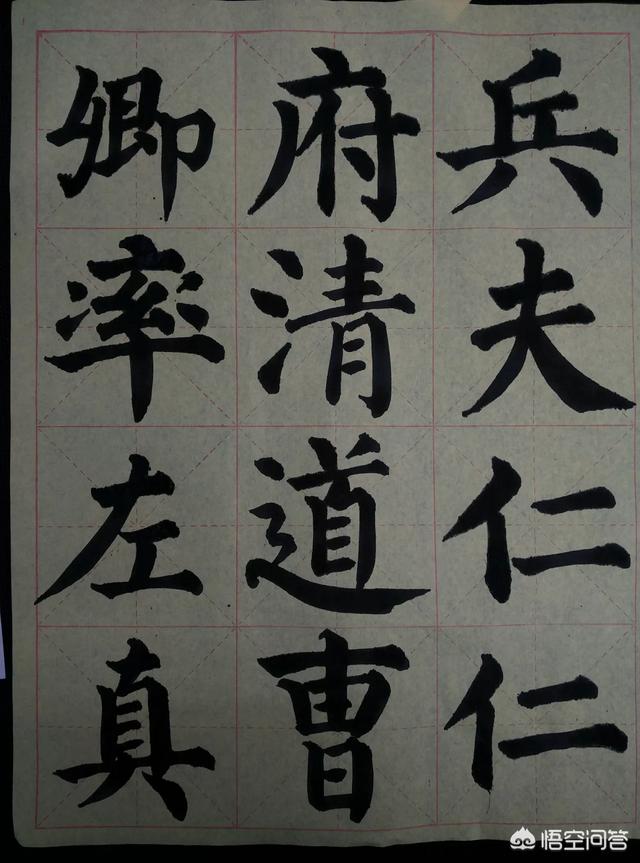 兵夫仁仁
府清道曹
卿率左真
悟空问答